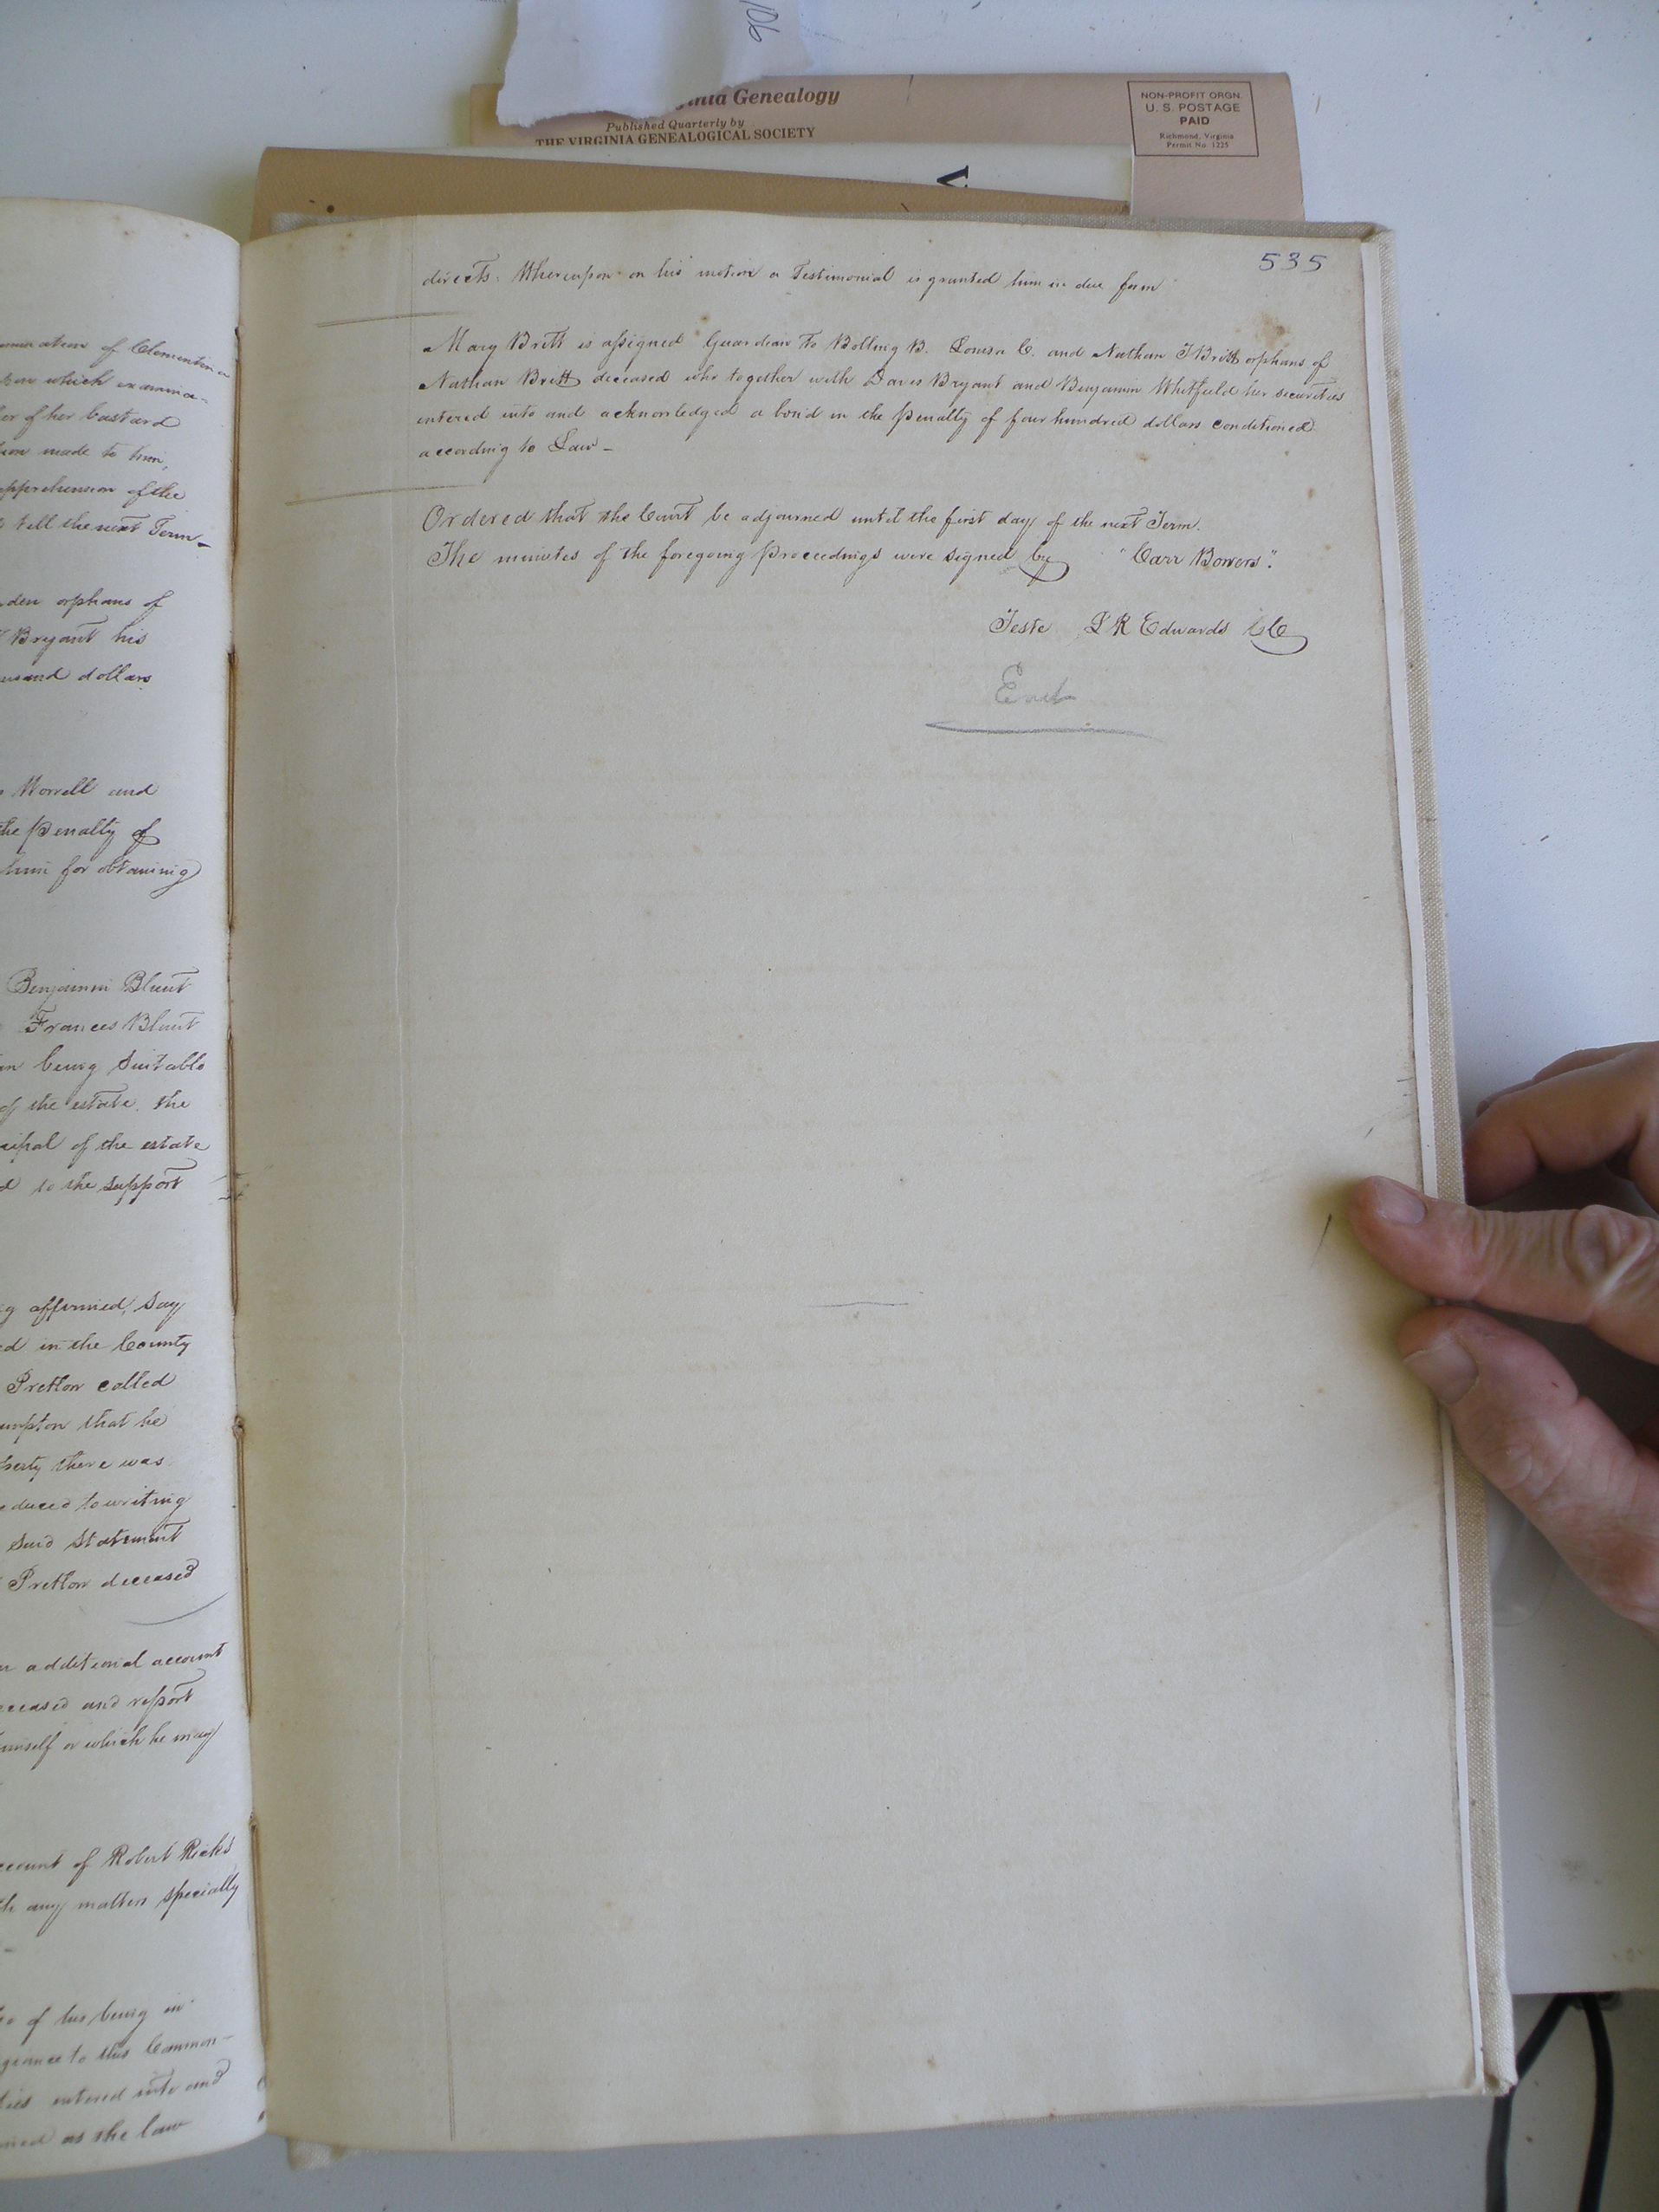 106
Genealogy
Published Quarterly by
THE VIRGINIA GENEALOGICAL SOCIETY
NON-PROFIT ORGN.
U. S. POSTAGE
PAID
Richmond, Virginia
Permit No. 1225
V
of Clementina
which examina-
of her bastard
made to him,
apprehension of the
till the next Term -
orphans of
Bryant his
dollars
Worrell and
the Penalty of
him for obtaining
Benjamin Blunt
Frances Blunt
being suitable
of the estate. the
of the estate
to the support
affirmed, Say
in the County
Pretlow called
that he
there was
to writing
said statement
Pretlow deceased
additional account
and report
or which he may
account of Robert Ricks
any matters specially
of his being in
to this Common-
entered into and
as the law
535
directs. Whereupon on his motion a Testimonial is granted him in due form
Mary Britt is assigned Guardian to Bolling B. Louisa C. and Nathan T Britt orphans of
Nathan Britt deceased who together with Davis Bryant and Benjamin Whitfield her securities
entered into and acknowledged a bond in the Penalty of four hundred dollars conditioned
according to Law -
Ordered that the Court be adjourned until the first day of the next Term.
The minutes of the foregoing Proceedings were signed by "Carr Bowers".
Teste L R Edwards CC
End